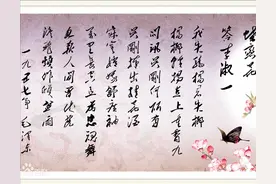 蝶恋花
答李淑一
我失骄杨君失柳
杨柳轻飏直上重霄九
问讯吴刚何所有
吴刚捧出桂花酒
寂寞嫦娥舒广袖
万里长空且为忠魂舞
忽报人间曾伏虎
泪飞顿作倾盆雨
一九五七年 毛泽东